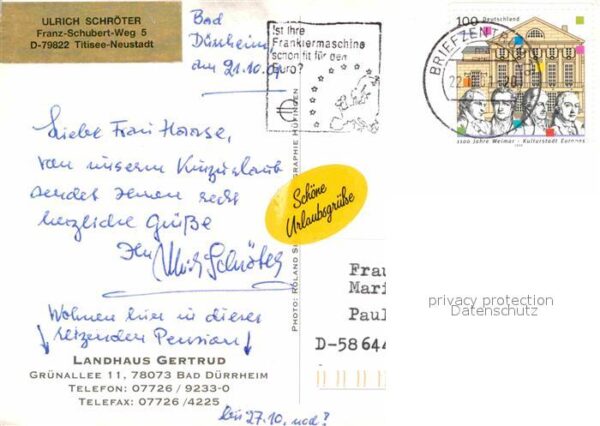 ULRICH SCHRÖTER
Franz-Schubert-Weg 5
D-79822 Titisee-Neustadt
Bad
Dürrheim,
am 21.10.
Ist Ihre
Frankiermaschine
schon fit für den
Euro?
BRIEFZENTRUM
100 Deutschland
1100 Jahre Weimar - Kulturstadt Europas
1999
Liebe Frau Haase,
von unserem Kurzurlaub
sendet Ihnen recht
herzliche Grüße
Ihr Ulrich Schröter
Schöne
Urlaubsgrüße
Wohnen hier in dieser
reizenden Pension
LANDHAUS GERTRUD
GRÜNALLEE 11, 78073 BAD DÜRRHEIM
TELEFON: 07726 / 9233-0
TELEFAX: 07726 /4225
bis 27.10. noch?
PHOTO: ROLAND
GRAPHIE HÜFINGEN
Frau
Mari
Paul
D-58644
privacy protection
Datenschutz